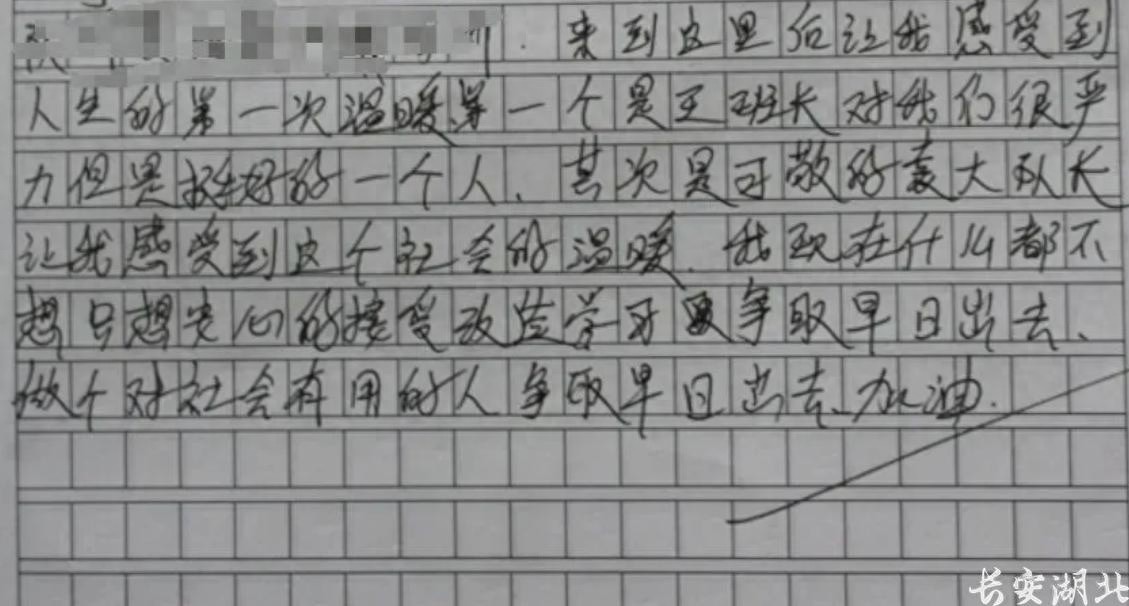 来到这里后让我感受到
人生的第一次温暖.第一个是王班长对我们很严
力但是挺好的一个人、其次是可敬的袁大队长
让我感受到这个社会的温暖.我现在什么都不
想只想安心的接受改造学习争取早日出去、
做个对社会有用的人争取早日出去、加油.
长安湖北